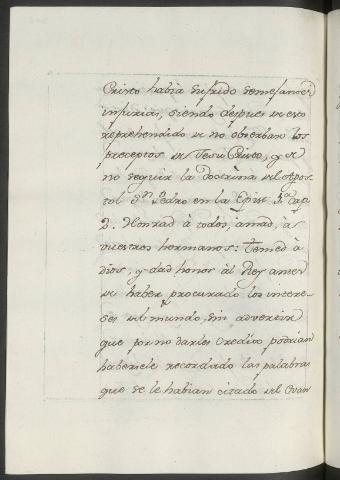 Cristo habia sufrido semejantes
injurias, siendo despues de esto
reprehendido de no observar los
preceptos de Jesu Cristo, y de
no seguir la doctrina del Apos-
tol Sn. Pedro en la Epist. 1a. cap.
2. Honrad à todos, amad, à
vuestros hermanos: Temed à
Dios, y dad honor àl Rey antes
de haber procurado los intere-
ses del mundo, sin advertir
que por no darles credito podrian
haberlele recordado las palabras
que se le habian citado del Evan